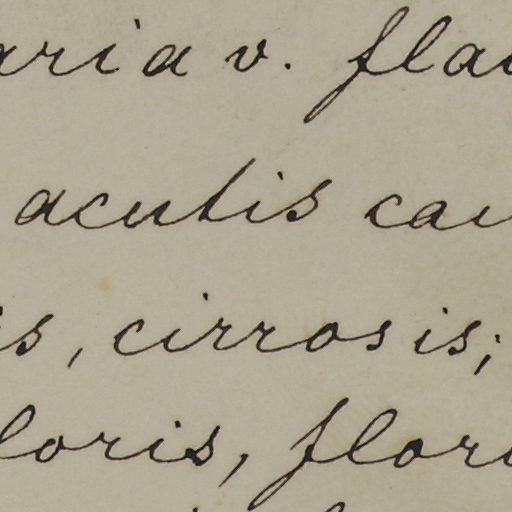 aria v. flav
acutis cau
is, cirrosis;
loris, flori